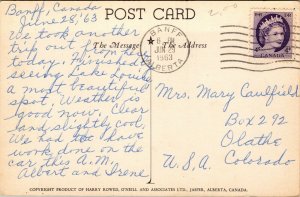 Banff, Canada
June 28, '63
POST CARD
We took another
trip out from here
today. Finished
seeing Lake Louise
a most beautiful
spot. Weather is
good now. Clear
and slightly cool.
We had to have
work done on the
car this A.M.
Albert and Irene
The Message
The Address
BANFF
1963
ALBERTA
Mrs. Mary Caulfield
Box 292
Olathe
Colorado
U.S.A.
COPYRIGHT PRODUCT OF HARRY ROWED, O'NEILL AND ASSOCIATES LTD., JASPER, ALBERTA, CANADA.